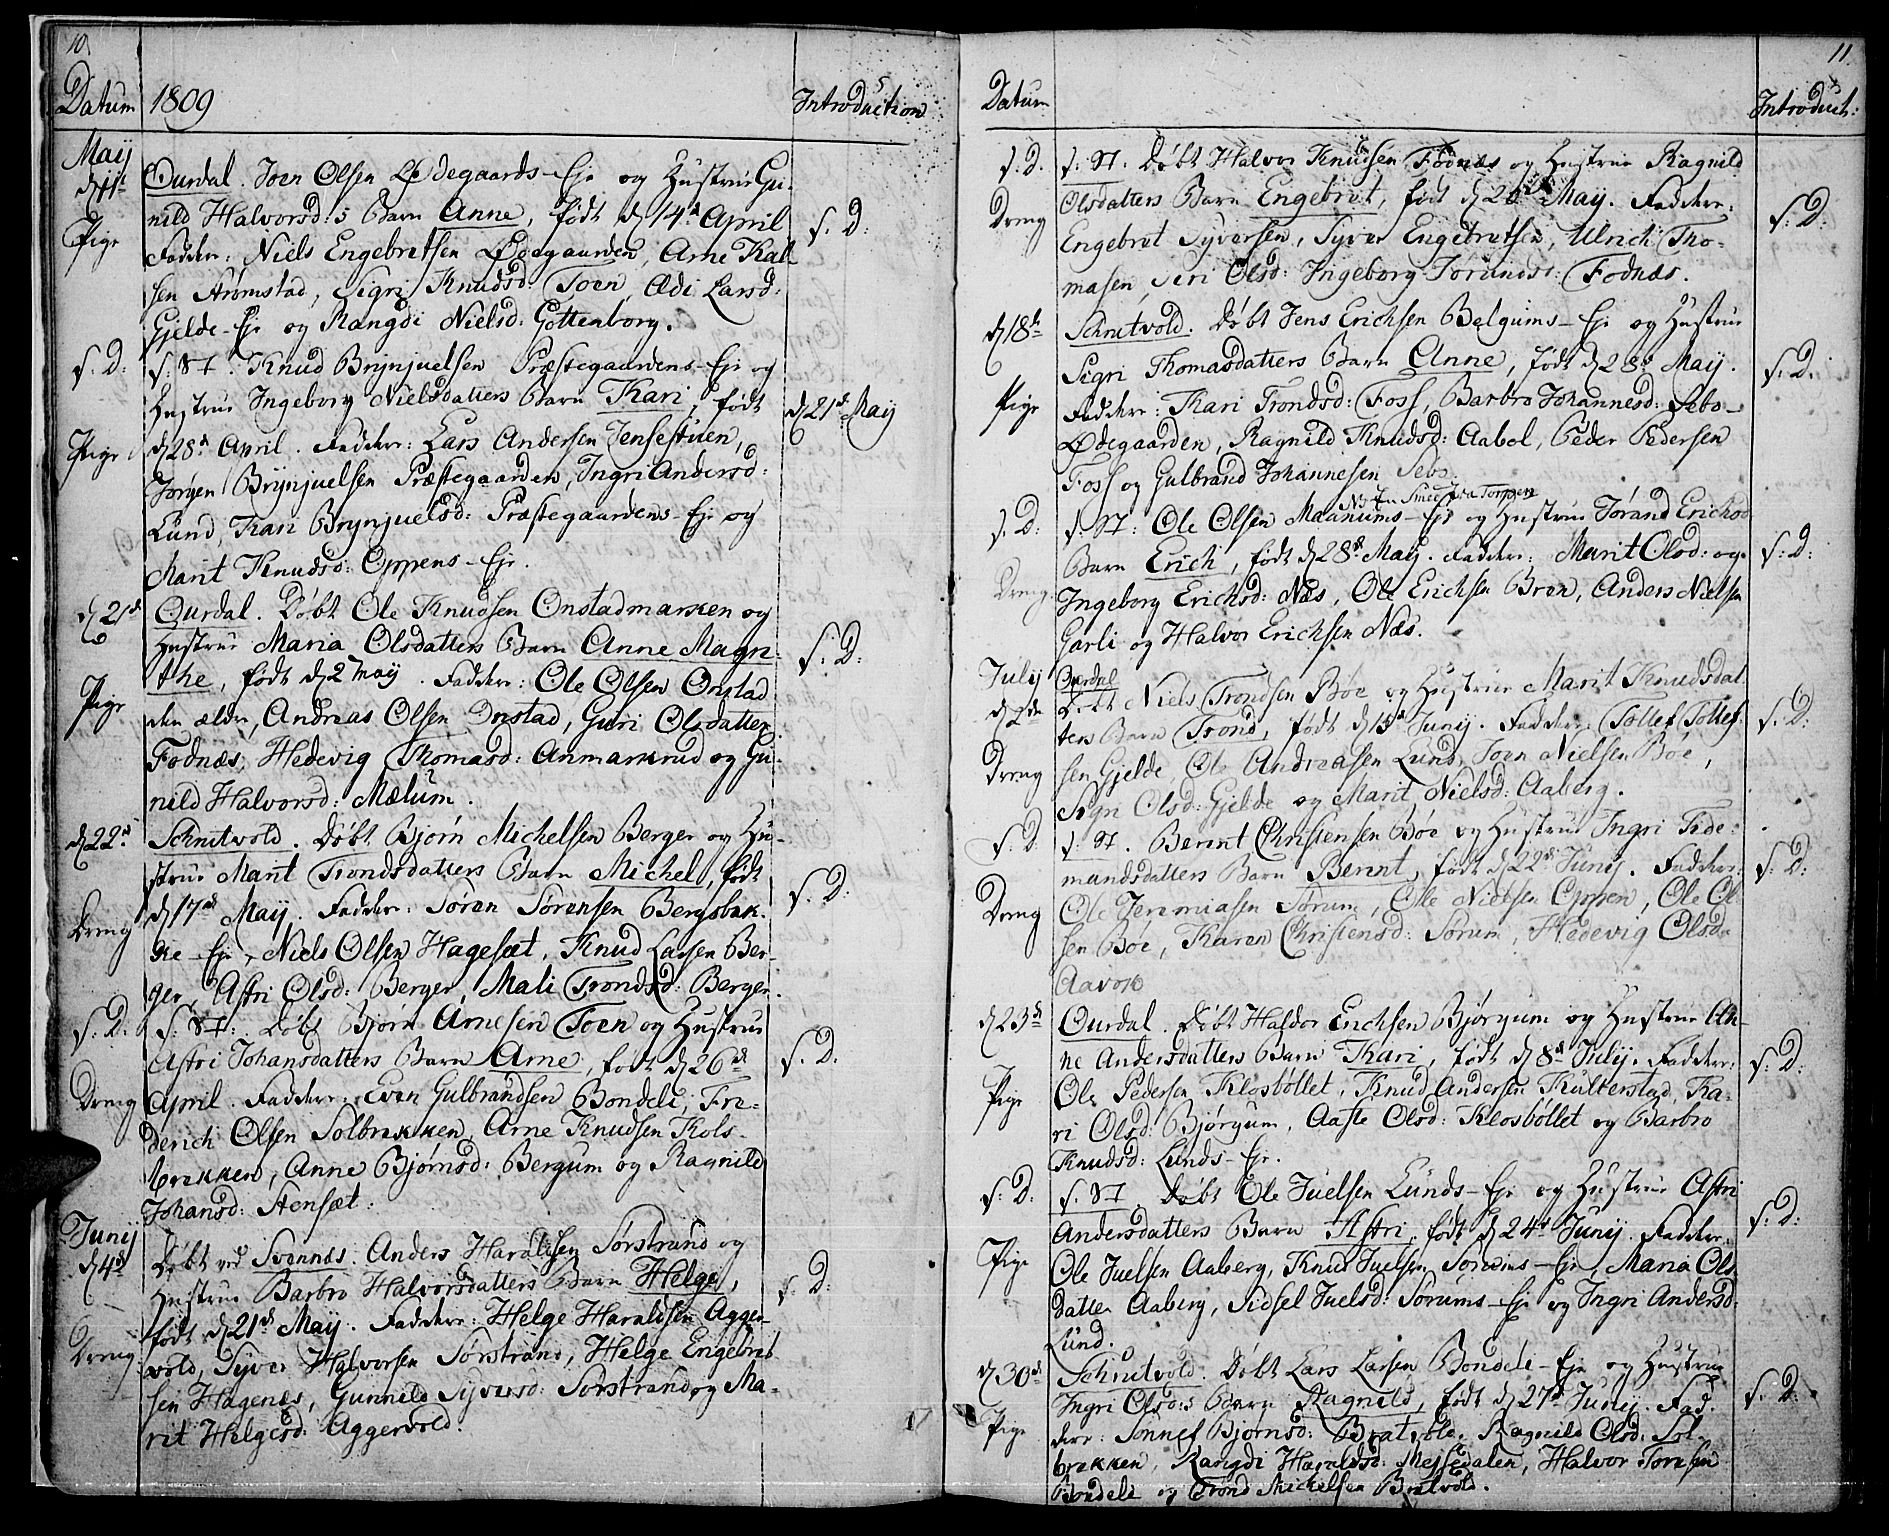 10.
Datum 1809 Introduction
May
d 11te Ourdal. Joen Olsen Ødegaards-Eje og Hustrue Gu-
Pige nild Halvorsd:s Barn Anne, født d 14d April s. D:
Faddere: Niels Engebretsen Ødegaarden, Arne Kal-
sen Strømstad, Sigri Knudsd: Toen, Ædi Larsd:
Gjelde-Eje og Rangdi Nielsd: Gottenborg.
s. D: s. St. Knud Brynjuelsen Præstegaardens-Eje og
Hustrue Ingeborg Nielsdatters Barn Kari, født d 21de May
Pige d 28d April. Faddere: Lars Andersen Jensestuen,
Jørgen Brynjuelsen Præstegaarden, Ingri Andersd:
Lund, Kari Brynjuelsd: Præstegaardens-Eje og
Marit Knudsd: Oppens-Eje.
d 21de Ourdal. Døbt Ole Knudsen Onstadmarken og
Hustrue Maria Olsdatters Barn Anne Magre- s. D:
Pige the, født d 2 May. Faddere: Ole Olsen Onstad
den ældre, Andreas Olsen Onstad, Guri Olsdatter
Fodnæs, Hedevig Thomasd: Anmarkrud og Gu-
nild Halvorsd: Mælum.
d 22d Schrutvold. Døbt Bjørn Michelsen Berger og Hu-
strue Marit Trondsdatters Barn Michel, født s. D:
Dreng d 17de May. Faddere: Søren Sørensen Bergsbak-
ke-Eje, Niels Olsen Hagesæt, Knud Larsen Ber-
ger, Astri Olsd: Berger, Mali Trondsd: Berger.
s. D: s. St: Døbt Bjørn Arnesen Toen og Hustrue
Astri Johansdatters Barn Arne, født d 26de s. D.
Dreng April. Faddere: Even Gulbrandsen Bondeli, Fre-
derich Olsen Solbrekken, Arne Knudsen Kols-
brekken, Anne Bjørnsd: Bergum og Ragnild
Johansd: Stensæt.
Junij
d 4de Døbt ved Svennæs. Anders Haraldsen Sørstrand og
Hustrue Barbro Halvorsdatters Barn Helge, s. D:
født d 21de May. Faddere: Helge Haraldsen Agger-
Dreng vold, Syver Halvorsen Sørstrand, Helge Engebret-
sen Hagenæs, Gunnild Syversd: Sørstrand og Ma-
rit Helgesd: Aggervold.
11.
Datum Introduct:
s. D. s. St. Døbt Halvor Knudsen Fodnæs og Hustrue Ragnild
Dreng Olsdatters Barn Engebret, født d 20de May. Faddere: s. D:
Engebret Syversen, Syver Engebretsen, Ulrich Tho-
masen, Siri Olsd: Ingeborg Jørundsd: Fodnæs.
d 18de Schrutvold. Døbt Jens Erichsen Belgums-Eje og Hustrue
Sigri Thomasdatters Barn Anne, født d 28de May. s. D.
Pige Faddere: Kari Trondsd: Foss, Barbro Johannesd: Sebo-
Ødegaarden, Ragnild Knudsd: Aabol, Peder Pedersen
Foss og Gulbrand Johannesen Sebo
NB. En Smed fra Torpen
s. D: s. St: Ole Olsen Maanums-Eje og Hustrue Jørand Erichsd
Barn Erich, født d 28de May. Faddere: Marit Olsd: og s: D:
Dreng Ingeborg Erichsd: Næs, Ole Erichsen Bron, Anders Nielsen
Garli og Halvor Erichsen Næs.
July Ourdal
d 2den Døbt Niels Trondsen Bøe og Hustrue Marit Knudsdat-
ters Barn Trond, født d 15d Junij. Faddere: Tollef Tollef- s. D:
Dreng sen Gjelde, Ole Andreasen Lund, Joen Nielsen Bøe,
Sigri Olsd: Gjelde og Marit Nielsd: Aaberg.
s. D: s. St. Bernt Christensen Bøe og Hustrue Ingri Tide-
mandsdatters Barn Bernt, født d 22de Junij. Faddere: s. D:
Dreng Ole Jeremiasen Sørum, Ole Nielsen Oppen, Ole Ol-
sen Bøe, Karen Christensd: Sørum, Hedevig Olsd:
Aavok
d 23de Ourdal. Døbt Haldor Erichsen Bjørgum og Hustrue An-
ne Andersdatters Barn Kari, født d 8de Julij. Faddere: s. D:
Pige Ole Pedersen Klosbøllet, Knud Andersen Kulterstad, Ka-
ri Olsd: Bjørgum, Aaste Olsd: Klosbøllet og Barbro
Knudsd: Lunds-Eje.
s. D: s. St Døbt Ole Juelsen Lunds-Eje og Hustrue Astri
Andersdatters Barn Astri, født d 24de Junij. Faddere: s. D:
Pige Ole Juelsen Aaberg, Knud Juelsen Sørums-Eje, Maria Ols-
datter Aaberg, Sidsel Juelsd: Sørums-Eje og Ingri Andersd:
Lund.
d 30de Schrutvold. Døbt Lars Larsen Bondeli-Eje og Hustrue
Ingri Olsd:s Barn Ragnild, født d 27de Junij. Fad- s. D:
Pige dere: Sønnef Bjørnsd: Bratvold, Ragnild Olsd: Sol-
brekken, Rangdi Haraldsd: Mejssedalen, Halvor Toresen
Bondeli og Trond Michelsen Bratvold.